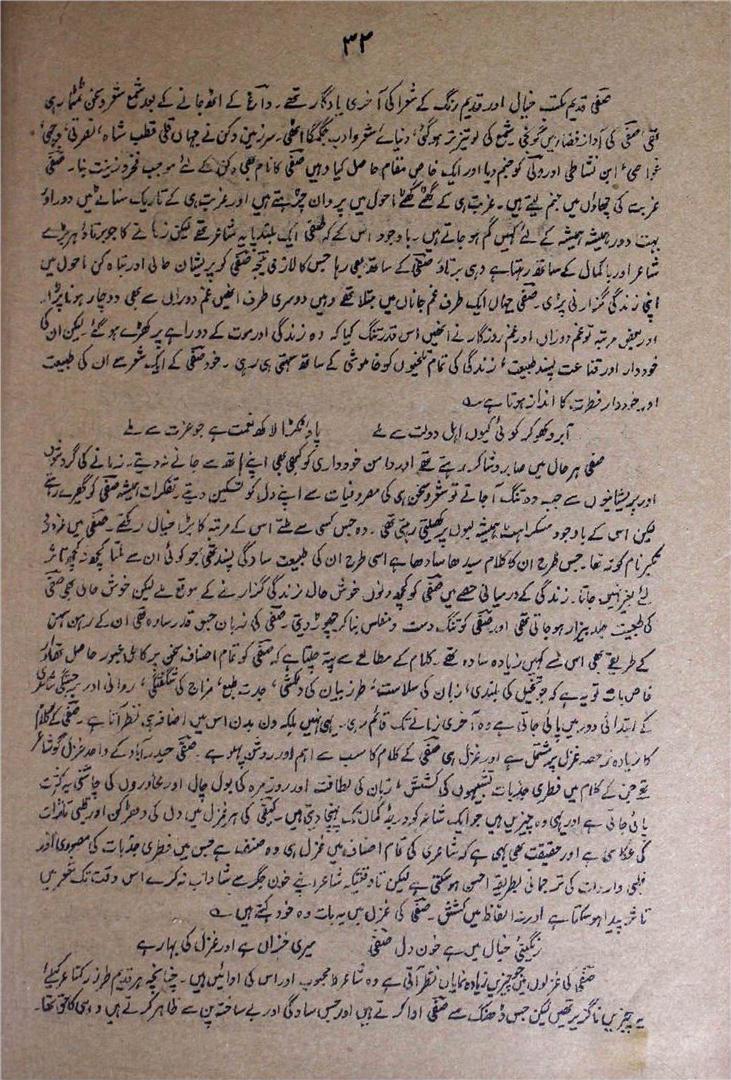 ۳۲
صفی قدیم مکتب خیال اور قدیم رنگ کے شعرا کی آخری یادگار تھے۔ داغ کے اٹھ جانے کے بعد شمع شعر و سخن ٹمٹما رہی
صفی کی آواز فضاء میں گونجی شمع کی لو تیز تر ہو گئی، دنیائے شعر و ادب جگمگا اٹھی۔ سرزمین دکن نے جہاں قلی قطب شاہ، نصرتی، وجہی،
غواصی، ابن نشاطی اور ولی کو جنم دیا اور ایک خاص مقام حاصل کیا وہیں صفی کا نام بھی دکن کے لئے موجب فخر و زینت بنا۔ صفی
غربت کی چھاؤں میں جنم لیتے ہیں۔ غربت ہی کے گھٹے گھٹے ماحول میں پروان چڑھتے ہیں اور غربت ہی کے تاریک سنائے میں دور اور
بہت دور ہمیشہ ہمیشہ کے لئے کہیں گم ہو جاتے ہیں۔ باوجود اس کے کہ صفی ایک بلند پایہ شاعر تھے لیکن زمانے کا جو برتاؤ ہر بڑے
شاعر اور باکمال کے ساتھ رہتا ہے وہی برتاؤ صفی کے ساتھ بھی رہا جس کا لازمی نتیجہ صفی کو پریشان حالی اور تباہ کن ماحول میں
اپنی زندگی گزارنی پڑی۔ صفی جہاں ایک طرف غم جاناں میں مبتلا تھے وہیں دوسری طرف انھیں غم دوراں سے بھی دوچار ہونا پڑا۔
اور بعض مرتبہ تو غم دوراں اور غم روزگار نے انھیں اس قدر تنگ کیا کہ وہ زندگی اور موت کے دوراہے پر کھڑے ہو گئے۔ لیکن ان کی
خوددار اور قناعت پسند طبیعت، زندگی کی تمام تلخیوں کو خاموشی کے ساتھ سہتی ہی رہی۔ خود صفی کے ایک شعر سے ان کی طبیعت
اور خوددار فطرت کا اندازہ ہوتا ہے ؎
آبرو کھو کر کوئی کیوں اہل دولت سے ملے پاؤ ٹکڑا لاکھ نعمت ہے جو عزت سے ملے
صفی ہر حال میں صابر و شاکر رہتے تھے اور دامن خودداری کو کبھی بھی اپنے ہاتھ سے جانے نہ دیتے۔ زمانے کی گردشوں
اور پریشانیوں سے جب وہ تنگ آ جاتے تو شعر و سخن ہی کی مصروفیات سے اپنے دل کو تسکین دیتے۔ تفکرات ہمیشہ صفی کو گھیرے رہتے
لیکن اس کے باوجود مسکراہٹ ہمیشہ لبوں پر کھیلتی رہتی تھی۔ وہ جس کسی سے ملتے اس کے مرتبہ کا بڑا خیال رکھتے۔ صفی میں غرور
تکبر نام کو نہ تھا۔ جس طرح ان کا کلام سیدھا سادھا ہے اسی طرح ان کی طبیعت سادگی پسند تھی جو کوئی ان سے ملتا کچھ نہ کچھ تاثر
لئے بغیر نہیں جاتا۔ زندگی کے درمیانی حصے میں صفی کو کچھ دنوں خوش حال زندگی گزارنے کے موقع ملے لیکن خوش حالی بھی صفی
کی طبیعت جلد بیزار ہو جاتی تھی اور صفی کو تنگ دست و مفلس بنا کر چھوڑ دیتی۔ صفی کی زبان جس قدر سادہ تھی ان کے رہن سہن
کے طریقے بھی اس سے کہیں زیادہ سادہ تھے۔ کلام کے مطالعے سے پتہ چلتا ہے کہ صفی کو تمام اصناف سخن پر کامل عبور حاصل تھا اور
خاص بات تو یہ ہے کہ جو تخیل کی بلندی، زبان کی سلاست، طرز بیان کی دلکشی، جدت طبع، مزاج کی شگفتگی، روانی اور برجستگی شاعری
کے ابتدائی دور میں پائی جاتی ہے وہ آخری زمانے تک قائم رہی۔ یہی نہیں بلکہ دن بدن اس میں اضافہ ہی نظر آتا ہے۔ صفی کے کلام
کا زیادہ تر حصہ غزل پر مشتمل ہے اور غزل ہی صفی کے کلام کا سب سے اہم اور روشن پہلو ہے۔ صفی حیدرآباد کے واحد غزل گو شاعر
تھے جن کے کلام میں فطری جذبات تشبیہوں کی کشش، زبان کی لطافت اور روزمرہ کی بول چال اور محاوروں کی چاشنی بہ کثرت
پائی جاتی ہے اور یہی وہ چیزیں ہیں جو ایک شاعر کو درجہ کمال تک پہنچا دیتی ہیں۔ صفی کی ہر غزل میں دل کی دھڑکن اور قلبی تاثرات
کی عکاسی ہے اور حقیقت بھی یہی ہے کہ شاعری کی تمام اصناف میں غزل ہی وہ صنف ہے جس میں فطری جذبات کی مصوری اور
قلبی واردات کی ترجمانی بطریقہ احسن ہو سکتی ہے لیکن تاوقتیکہ شاعر اپنے خون جگر سے شاداب نہ کرے اس وقت تک شعر میں
تاثر پیدا ہو سکتا ہے اور نہ الفاظ میں کشش۔ صفی کی غزل میں یہ بات وہ خود کہتے ہیں ؎
رنگینیٔ خیال میں ہے خون دل صفی میری خزاں ہے اور غزل کی بہار ہے
صفی کی غزلوں میں جو چیزیں زیادہ نمایاں نظر آتی ہے وہ شاعر کا محبوب اور اس کی ادائیں ہیں۔ چنانچہ ہر قدیم طرز کے شاعر کیلئے
یہ چیزیں ناگزیر تھیں لیکن جس ڈھنگ سے صفی ادا کرتے ہیں اور جس سادگی اور بے ساختہ پن سے ظاہر کرتے ہیں وہ اسی کا حق تھا۔